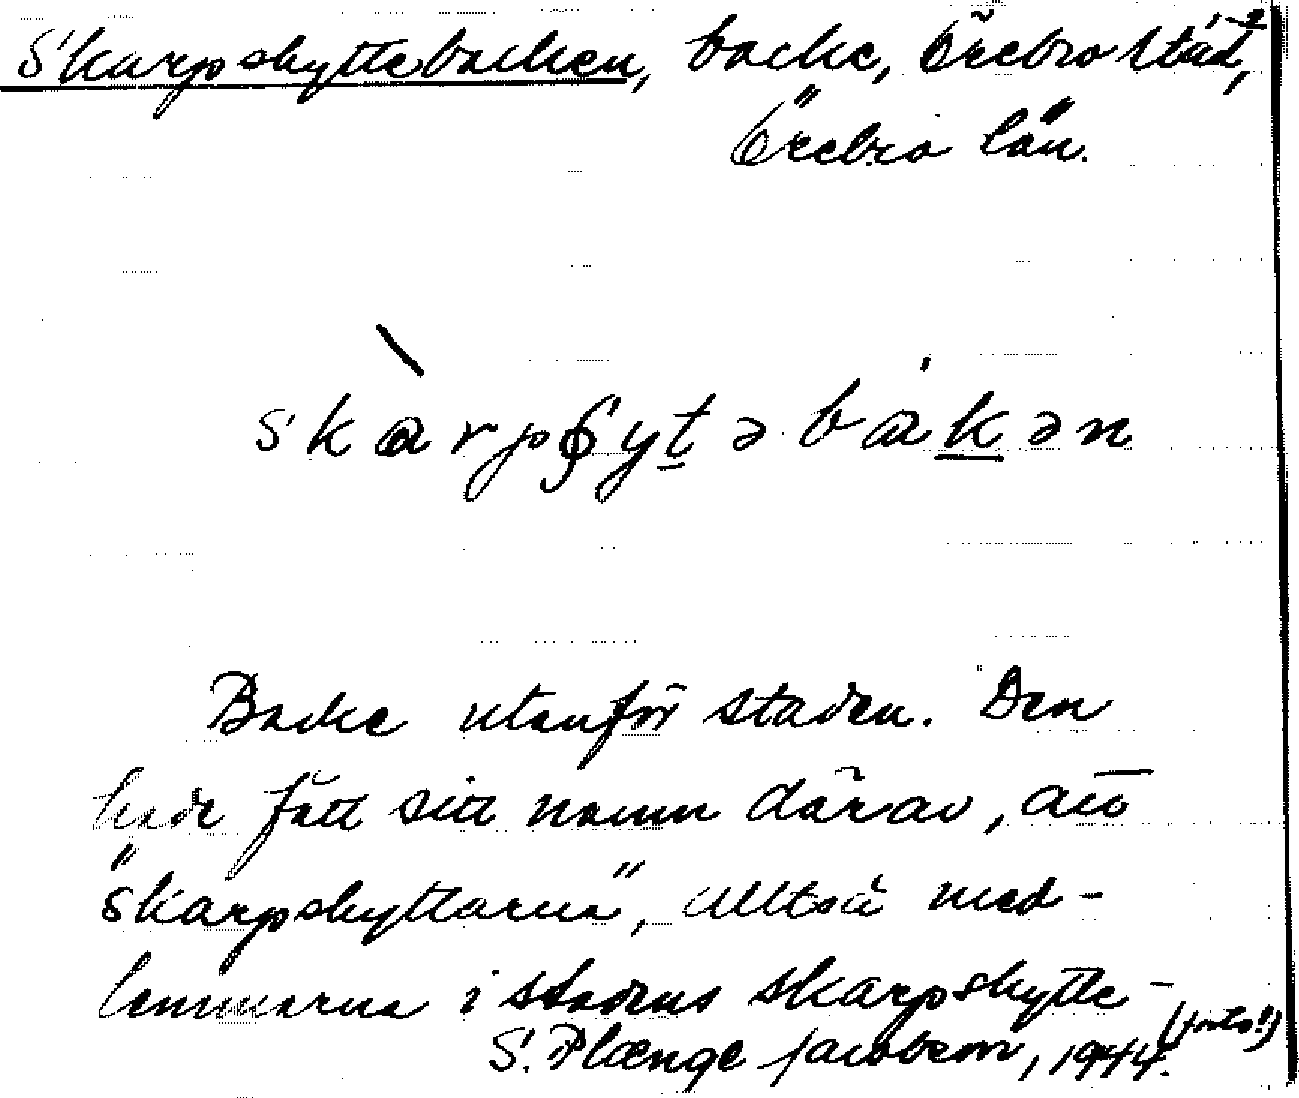 Skarpskyttebacken, backe, Örebro stad,
Örebro län.
skarpʃytəbakən
Backe utanför staden. Den
hade fått sitt namn därav, att
"skarpskyttarna", alltså med-
lemmarna i stadens skarpskytte-
(forts!)
S. Plænge Jacobson, 1944.